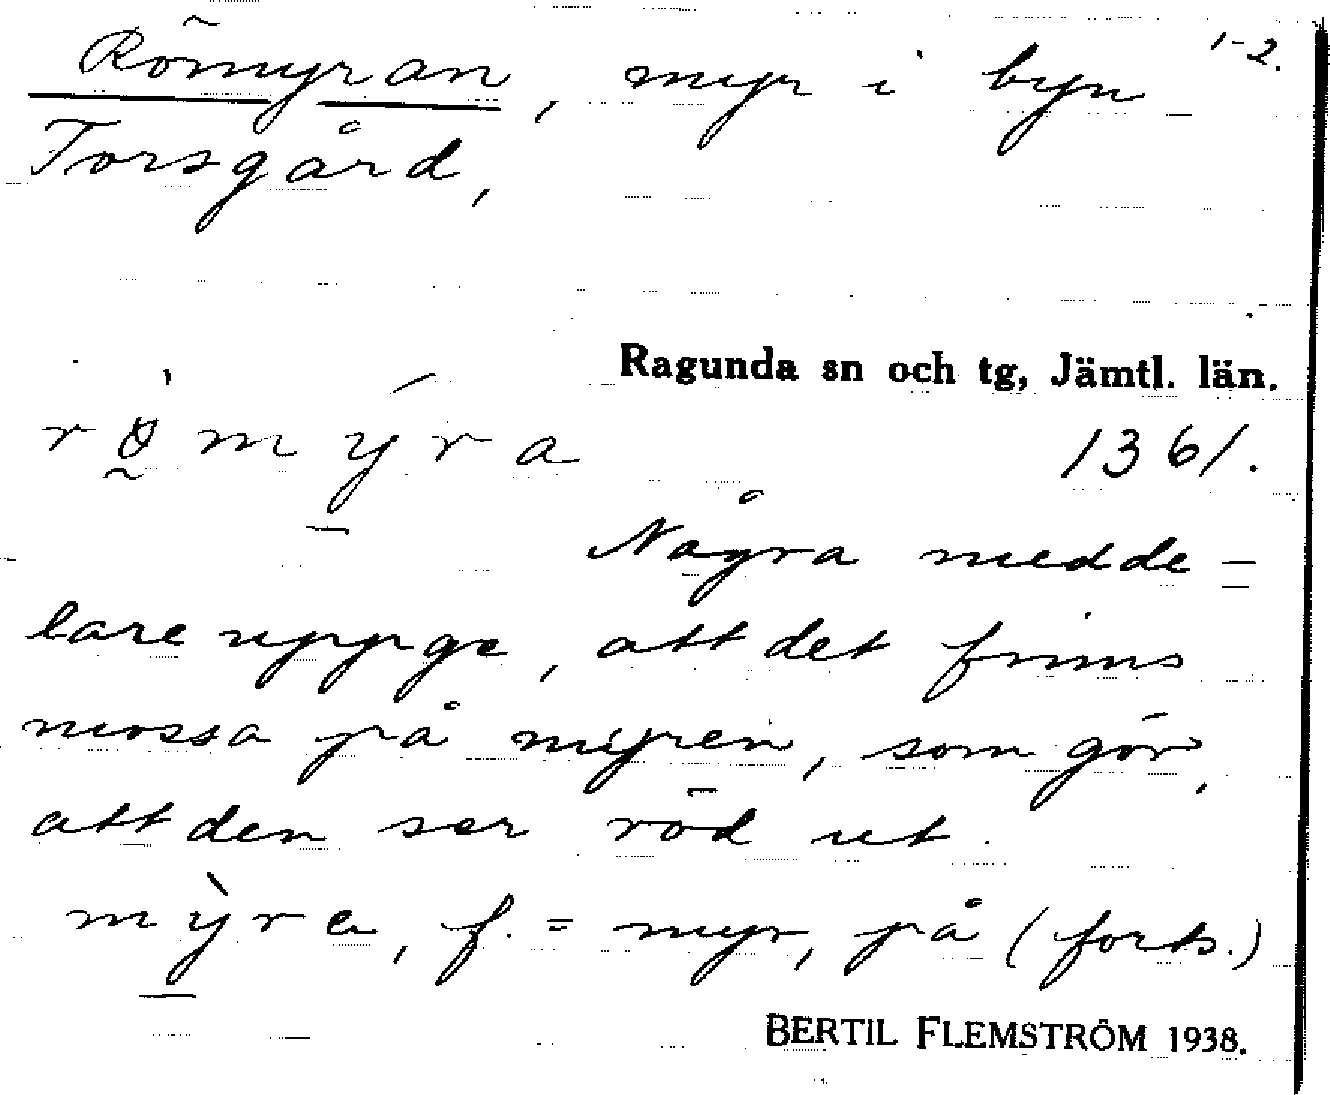 1-2.
Römyran, myr i byn
Torsgård,
Ragunda sn och tg, Jämtl. län.
rø̰̀mýra 1361.
Några medde=
lare uppge, att det finns
mossa på myren, som gör,
att den ser röd ut.
mỳra, f. = myr, på (forts.)
BERTIL FLEMSTRÖM 1938.